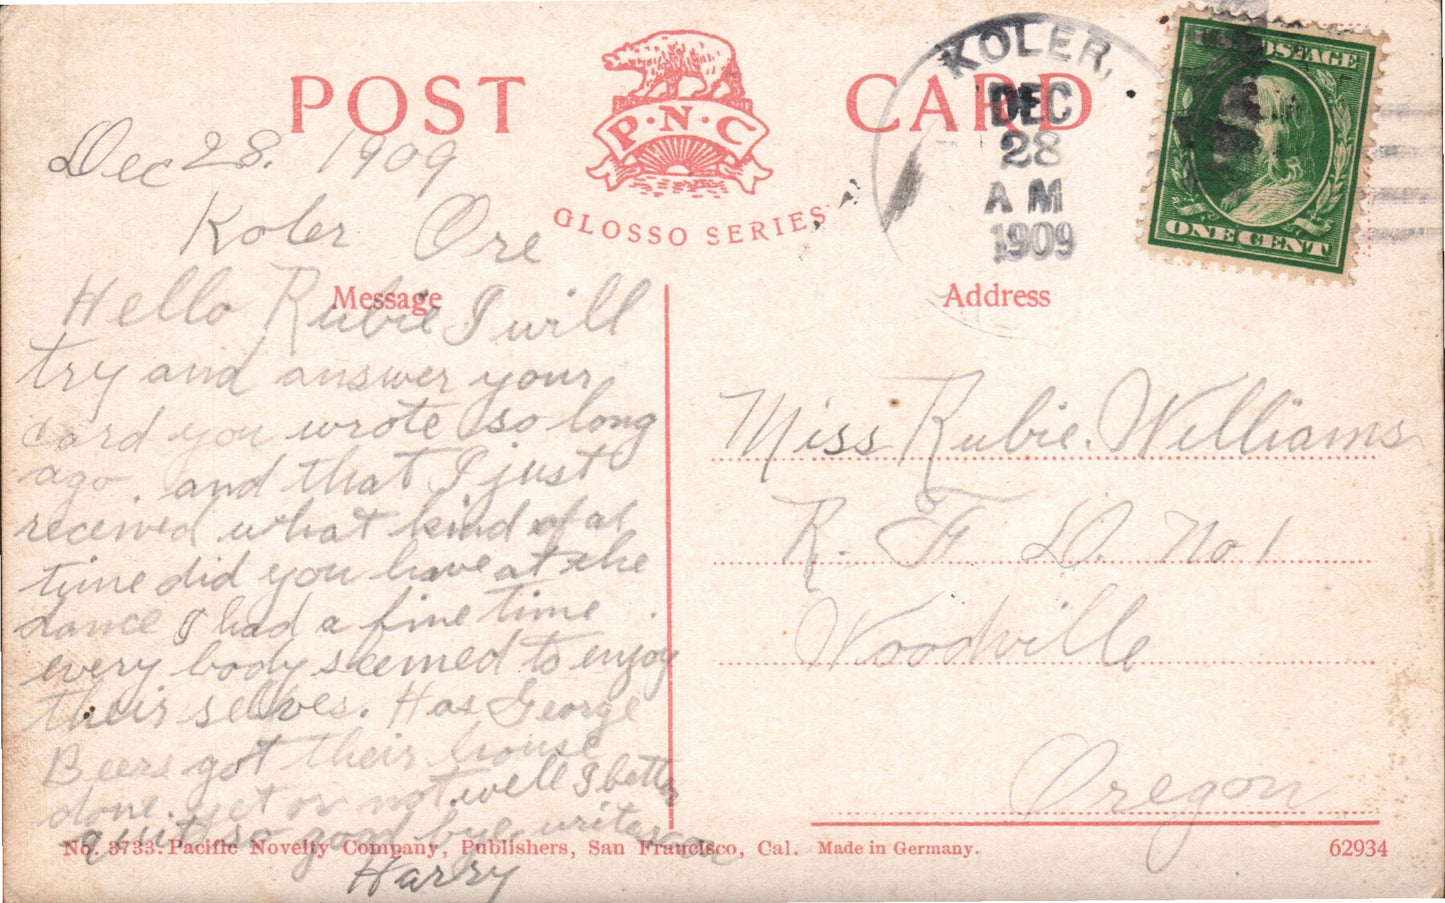 POST CARD
P·N·C
GLOSSO SERIES
KOLER,
DEC
28
A M
1909
POSTAGE
ONE CENT
Dec 28. 1909
Koler Ore
Message
Hello Rubie I will
try and answer your
card you wrote so long
ago. and that I just
received what kind of at
time did you have at the
dance I had a fine time.
every body seemed to enjoy
their selves. Has George
Beers got their house
done. yet or not. well I better
quit so good bye. write soon
Harry
Address
Miss Rubie. Williams
R. F. D. No 1
Woodville
Oregon
No. 3733. Pacific Novelty Company, Publishers, San Francisco, Cal. Made in Germany.
62934